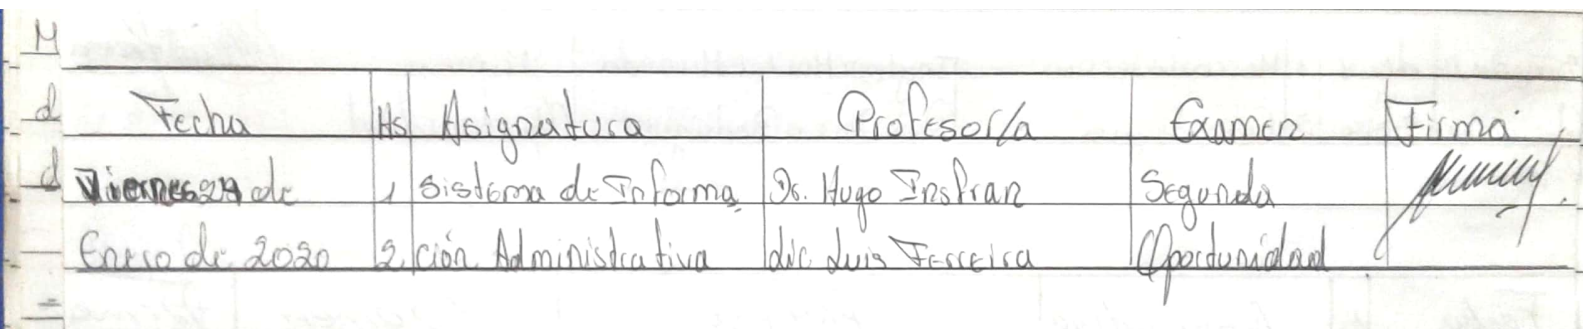 M
d
Fecha Hs Asignatura Profesor/a Examen Firma
d
Viernes 24 de 1 Sistema de Informa_ Ds. Hugo Insfran Segunda
Enero de 2020 2 ción Administrativa Lic Luis Ferreira Oportunidad